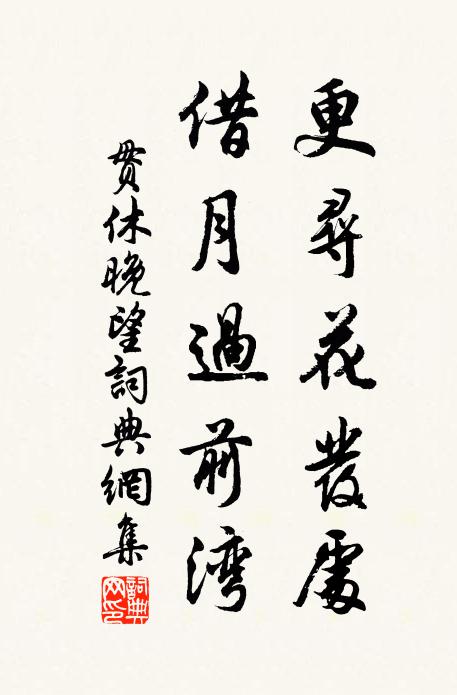 更尋花發處
借月過前湾
貫休晚望詞典網集
詞典網印